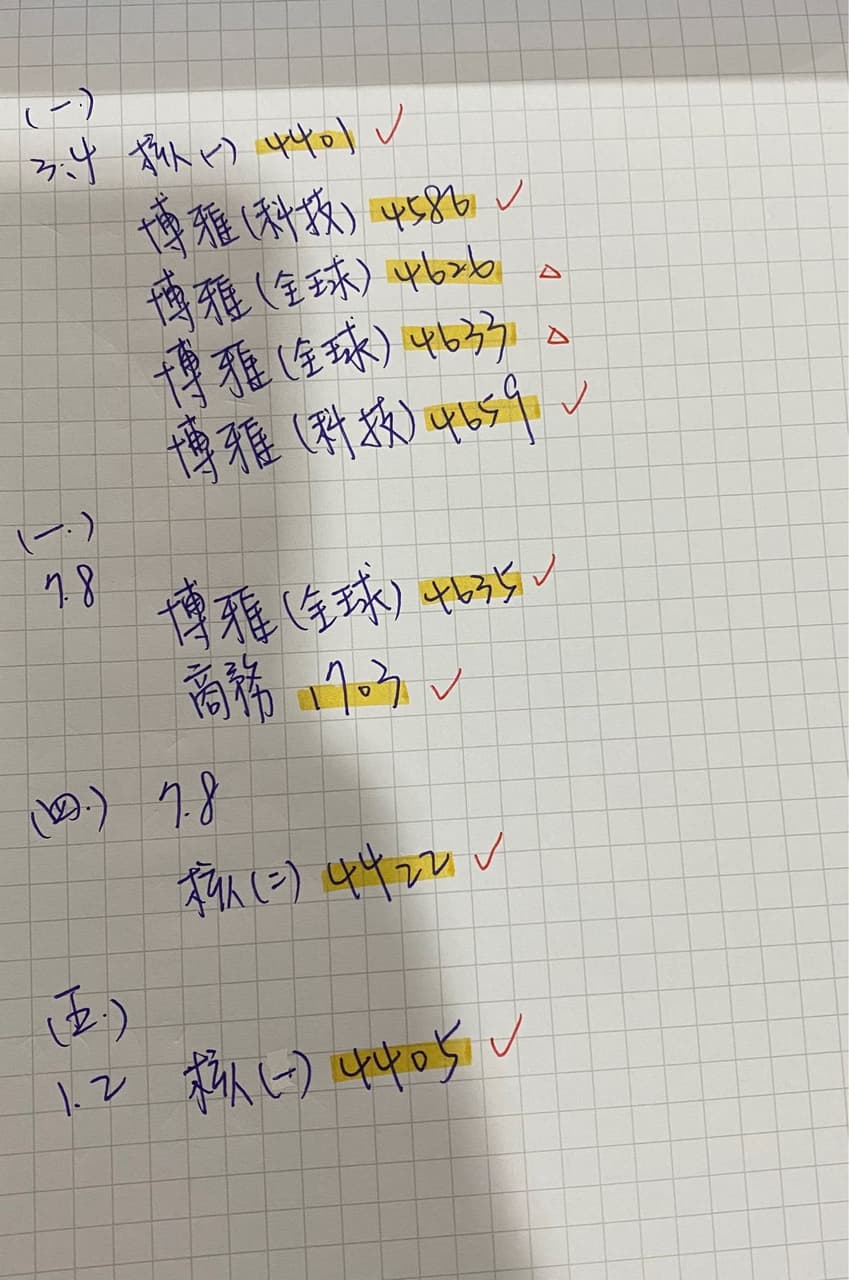 (一.)
3.4 核心(一) 4401 ✓
博雅(科技) 4586 ✓
博雅(全球) 4626 △
博雅(全球) 4633 △
博雅(科技) 4659 ✓
(一.)
7.8
博雅(全球) 4635 ✓
商務 1703 ✓
(四.) 7.8
核心(二) 4422 ✓
(五.)
1.2 核心(一) 4405 ✓